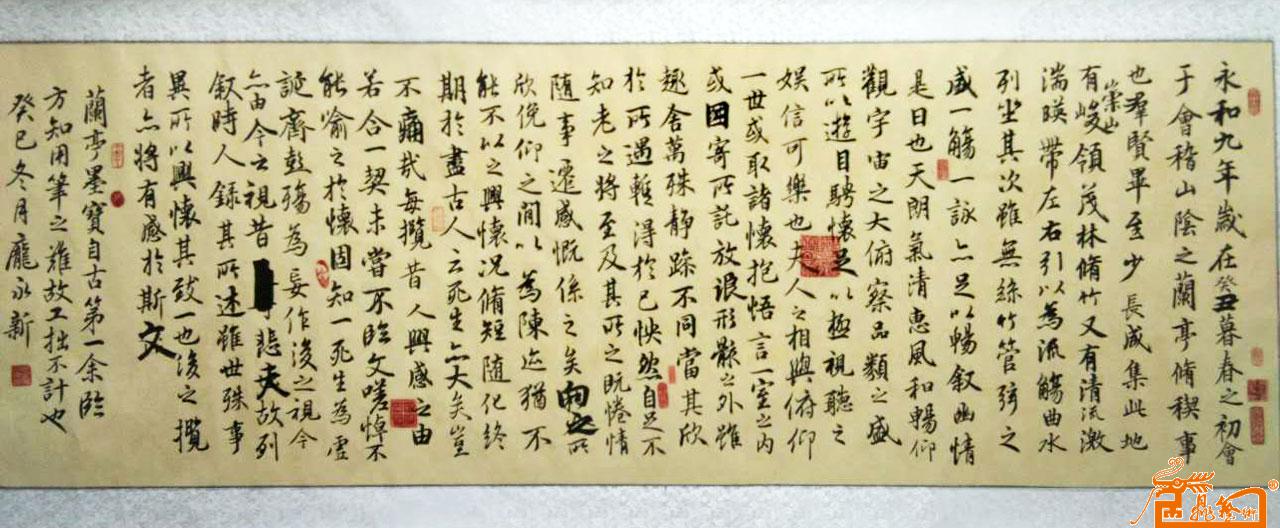 永和九年歲在癸丑暮春之初會
于會稽山陰之蘭亭脩稧事
也羣賢畢至少長咸集此地
有崇山峻領茂林脩竹又有清流激
湍暎帶左右引以為流觴曲水
列坐其次雖無絲竹管弦之
盛一觴一詠亦足以暢敘幽情
是日也天朗氣清惠風和暢仰
觀宇宙之大俯察品類之盛
所以遊目騁懷足以極視聽之
娛信可樂也夫人之相與俯仰
一世或取諸懷抱悟言一室之內
或因寄所託放浪形骸之外雖
趣舍萬殊靜躁不同當其欣
於所遇暫得於己怏然自足不
知老之將至及其所之既惓情
隨事遷感慨係之矣向之所
欣俛仰之間以為陳迹猶不
能不以之興懷況脩短隨化終
期於盡古人云死生亦大矣豈
不痛哉每攬昔人興感之由
若合一契未嘗不臨文嗟悼不
能喻之於懷固知一死生為虛
誕齊彭殤為妄作後之視今
亦由今之視昔悲夫故列
敘時人錄其所述雖世殊事
異所以興懷其致一也後之攬
者亦將有感於斯文
蘭亭墨寶自古第一余臨
方知用筆之難故工拙不計也
癸巳冬月龐永新